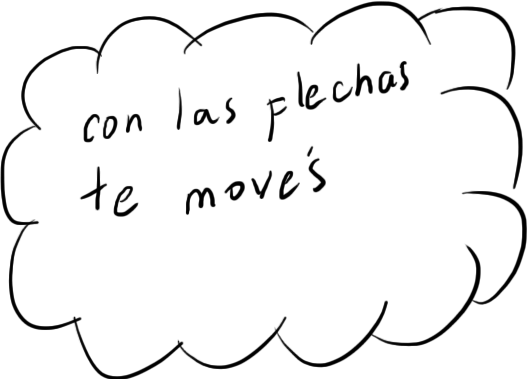 con las flechas
te movés